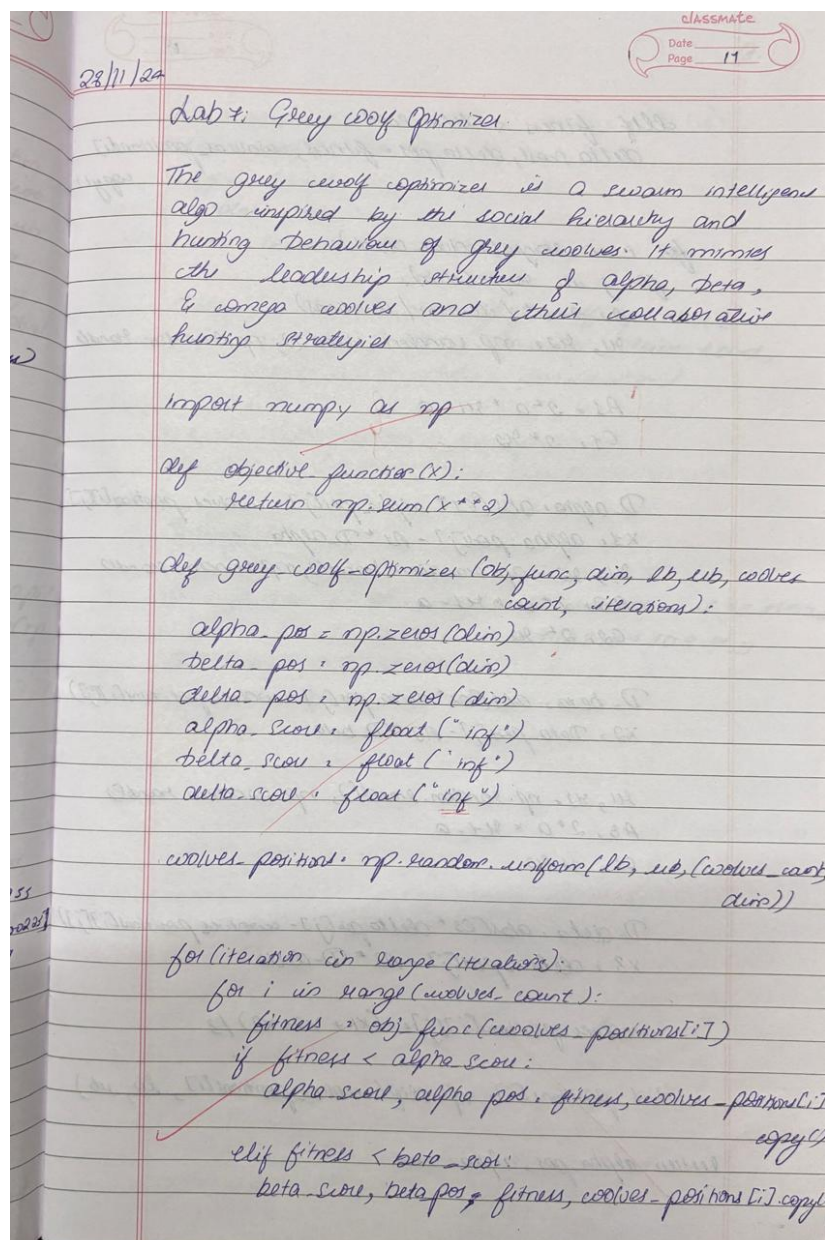 classmate
Date
Page 17
28/11/24
Lab 7: Grey wolf Optimizer.
The grey wolf optimizer is a swarm intelligence
algo inspired by the social hierarchy and
hunting behaviour of grey wolves. it mimics
the leadership structure of alpha, beta,
& omega wolves and their collaborative
hunting strategies
import numpy as np
def objective_function(x):
return np.sum(x**2)
def grey_woolf-optimizer (obj_func, dim, lb, ub, wolves
count, iterations):
alpha_pos = np.zeros(dim)
beta_pos = np.zeros(dim)
delta_pos = np.zeros(dim)
alpha_score = float("inf")
beta_score = float("inf")
delta_score = float("inf")
wolves_positions = np.random.uniform(lb, ub, (wolves_count,
dim))
for (iteration in range(iterations):
for i in range(wolves_count):
fitness = obj_func(wolves_positions[i])
if fitness < alpha_score:
alpha_score, alpha pos = fitness, wolves_positions[i]
copy()
elif fitness < beta_score:
beta_score, beta pos = fitness, wolves_positions[i].copy(